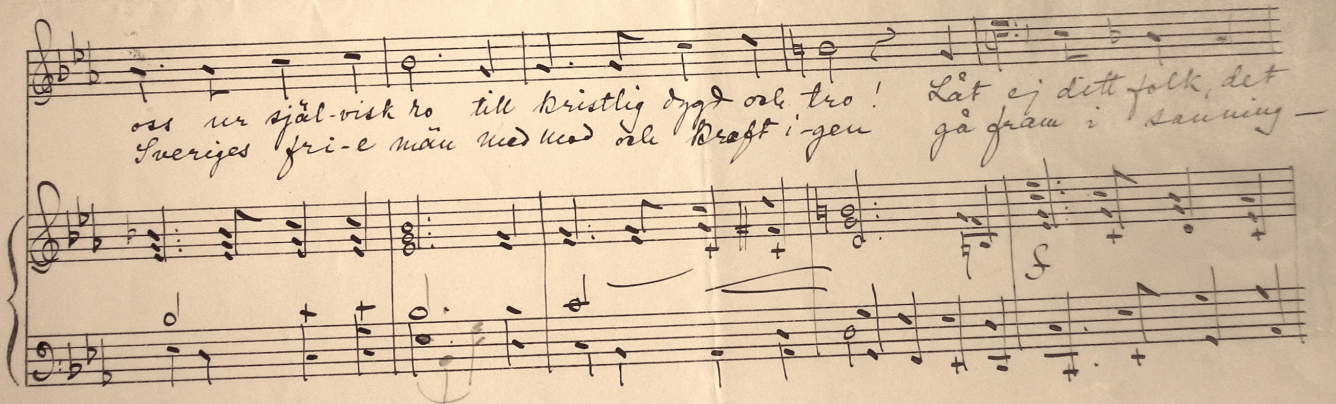 oss ur själ-visk ro till kristlig dygd och tro! Låt ej ditt folk, det
Sveriges fri-e män med mod och kraft i-gen gå fram i sanning-
f